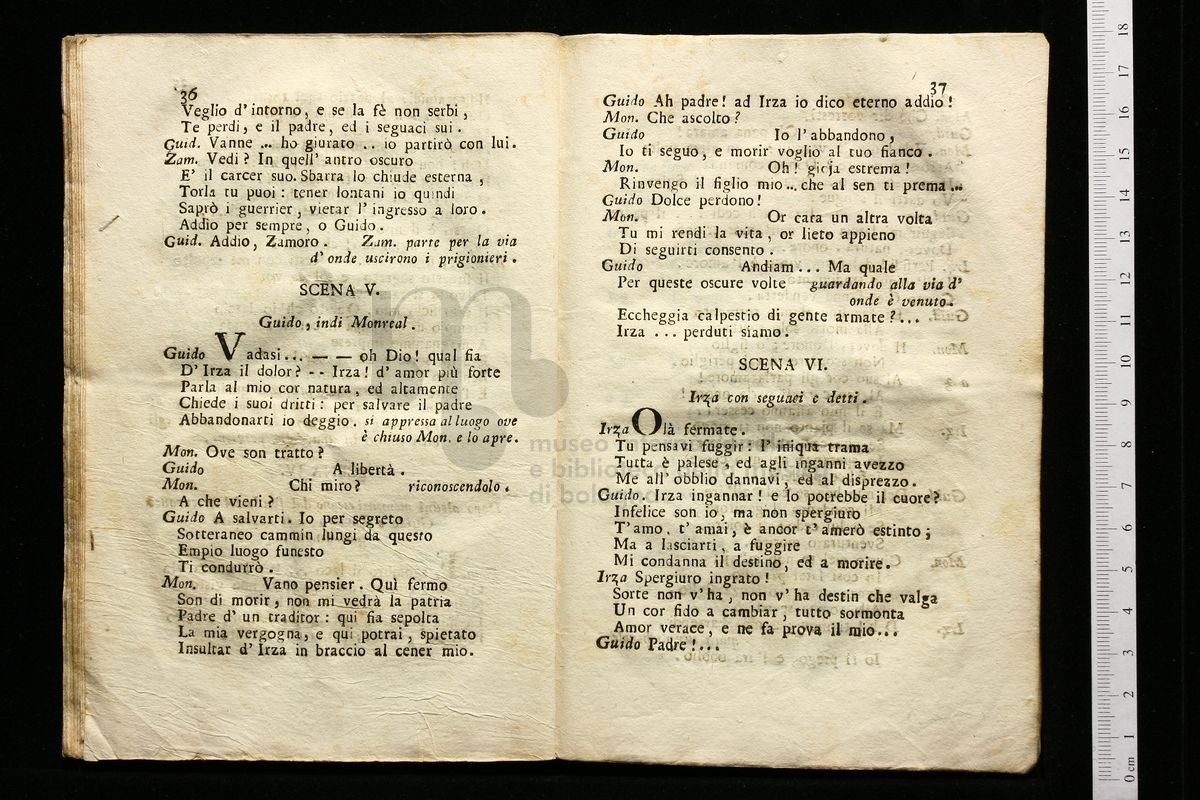 36
Veglio d'intorno, e se la fè non serbi,
Te perdi, e il padre, ed i seguaci sui.
Guid. Vanne ... ho giurato .. io partirò con lui.
Zam. Vedi? In quell' antro oscuro
E' il carcer suo. Sbarra lo chiude esterna,
Torla tu puoi: tener lontani io quindi
Saprò i guerrier, vietar l' ingresso a loro.
Addio per sempre, o Guido.
Guid. Addio, Zamoro. Zam. parte per la via
d' onde uscirono i prigionieri.
SCENA V.
Guido, indi Monreal.
Guido Vadasi... — — oh Dio! qual fia
D' Irza il dolor? - - Irza! d' amor più forte
Parla al mio cor natura, ed altamente
Chiede i suoi dritti: per salvare il padre
Abbandonarti io deggio. si appressa al luogo ove
è chiuso Mon. e lo apre.
Mon. Ove son tratto?
Guido A libertà.
Mon. Chi miro? riconoscendolo.
A che vieni?
Guido A salvarti. Io per segreto
Sotteraneo cammin lungi da questo
Empio luogo funesto
Ti condurrò.
Mon. Vano pensier. Quì fermo
Son di morir, non mi vedrà la patria
Padre d' un traditor: qui fia sepolta
La mia vergogna, e qui potrai, spietato
Insultar d' Irza in braccio al cener mio.
37
Guido Ah padre! ad Irza io dico eterno addio!
Mon. Che ascolto?
Guido Io l' abbandono,
Io ti seguo, e morir voglio al tuo fianco.
Mon. Oh! gioja estrema!
Rinvengo il figlio mio... che al sen ti prema...
Guido Dolce perdono!
Mon. Or cara un altra volta
Tu mi rendi la vita, or lieto appieno
Di seguirti consento.
Guido Andiam... Ma quale
Per queste oscure volte guardando alla via d'
onde è venuto.
Eccheggia calpestio di gente armate?...
Irza ... perduti siamo!
SCENA VI.
Irza con seguaci e detti.
Irza Olà fermate.
Tu pensavi fuggir: l' iniqua trama
Tutta è palese, ed agli inganni avezzo
Me all' obblio dannavi, ed al disprezzo.
Guido. Irza ingannar! e lo potrebbe il cuore?
Infelice son io, ma non spergiuro
T' amo, t' amai, è ancor t' amerò estinto;
Ma a lasciarti, a fuggire
Mi condanna il destino, ed a morire.
Irza Spergiuro ingrato!
Sorte non v' ha, non v' ha destin che valga
Un cor fido a cambiar, tutto sormonta
Amor verace, e ne fa prova il mio...
Guido Padre!...
museo
e biblio
di bolo
0 cm 1 2 3 4 5 6 7 8 9 10 11 12 13 14 15 16 17 18